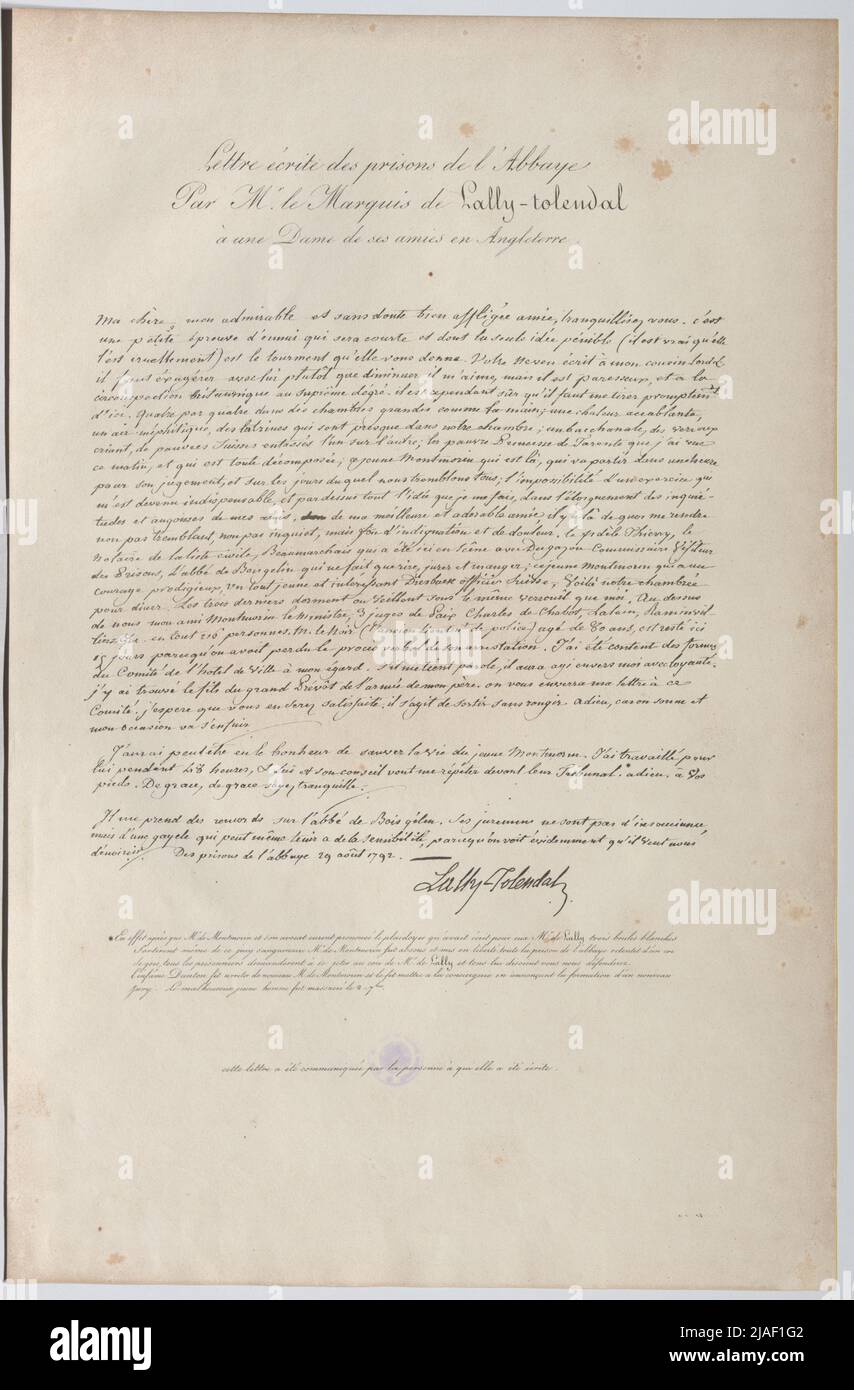 Lettre écrite des prisons de l'Abbaye
Par Mr. le Marquis de Lally-tolendal
à une Dame de ses amies en Angleterre.
Ma chère, mon admirable et sans doute bien affligée amie, tranquillisez vous. c'est
une petite épreuve d'ennui qui sera courte et dont la seule idée pénible (il est vrai qu'elle
l'est cruellement) est le tourment qu'elle vous donne. Votre neveu écrit à mon cousin
il faut exagérer avec lui plutôt que diminuer il m'aime, mais il est paresseux, et a la
circonspection britannique au suprême dégré. il est cependant sûr qu'il faut me tirer promptemt
d'ici. Quatre par quatre dans des chambres grandes comme la main; une chaleur accablante,
un air méphitique, des latrines qui sont presque dans notre chambre; un bacchanale, des verroux
criant, de pauvres Suisses entassés l'un sur l'autre; la pauvre Princesse de Tarente que j'ai vue
ce matin, et qui est toute décomposée; ce jeune Montmorin qui est là, qui va partir dans une heure
pour son jugement, et sur les jours duquel nous tremblons tous; l'impossibilité d'un exercice qui
m'est devenu indispensable, et par dessus tout l'idée que je me fais, dans l'éloignement des inquié-
tudes et angoisses de mes amis, de ma meilleure et adorable amie il y a là de quoi me rendre
non pas tremblant, non pas inquiet, mais fou d'indignation et de douleur. le fidèle Thierry, le
Notaire de la liste civile, Beaumarchais qui a été ici en scène avec Dugazon Commissaire Visiteur
des Prisons, L'abbé de Boisgelin qui ne fait que rire, jurer et manger; ce jeune Montmorin qui a un
courage prodigieux, un tout jeune et intéressant Diesback officier Suisse, Voilà notre chambrée
pour diner. Les trois derniers dorment ou veillent sous le même verrouil que moi. Au dessus
de nous mon ami Montmorin le Ministre, 3 juges de Paix Charles de Chabot,
en tout 216 personnes. M. le Noir (l'ancien lieutt. de police) agé de 80 ans, est resté ici
15 jours parcequ'on avait perdu le procès verbal de son arrestation. J'ai été content des formes
du Comité de l'hotel de Ville à mon égard. s'il me tient parole, il aura agi envers moi avec loyauté.
j'y ai trouvé le fils du grand Prévôt de l'armée de mon père. on vous enverra ma lettre à ce
Comité. j'espère que vous en serez satisfaite. il s'agit de sortir sans rougir adieu, car on sonne et
mon occasion va s'enfuir
J'aurai peut être eu le bonheur de sauver la vie du jeune Montmorin. J'ai travaillé pour
lui pendant 48 heures, & lui et son conseil vont me répéter devant leur Tribunal. adieu. à vos
pieds. De grace, de grace soyez tranquille.
Il me prend des remords sur l'abbé de Boisgelin. Ses juremens ne sont pas d'insouciance,
mais d'une gayeté qui peut même tenir a de la sensibilité, parcequ'on voit évidemment qu'il veut nous
dénoircir. Des prisons de l'abbaye 29 août 1792.
Lally-Tolendal
En effet après que Mr. de Montmorin et son avocat eurent prononcé le plaidoyer qu'avait écrit pour eux Mr. de Lally trois boules blanches
sortirent même de ce jury sanguinaire Mr. de Montmorin fut absous et mis en liberté toute la prison de l'abbaye retentit d'un cri
de joie, tous les prisonniers demandèrent à se jeter au cou de Mr. de Lally et tous lui disaient vous nous défendrez.
L'infâme Danton fit arrêter de nouveau M. de Montmorin et le fit mettre a la conciergerie en annonçant la formation d'un nouveau
jury. Le malheureux jeune homme fut massacré le 2 7bre.
cette lettre a été communiquée par la personne à qui elle a été écrite.
alamy
Image ID: 2JAF1G2
www.alamy.com